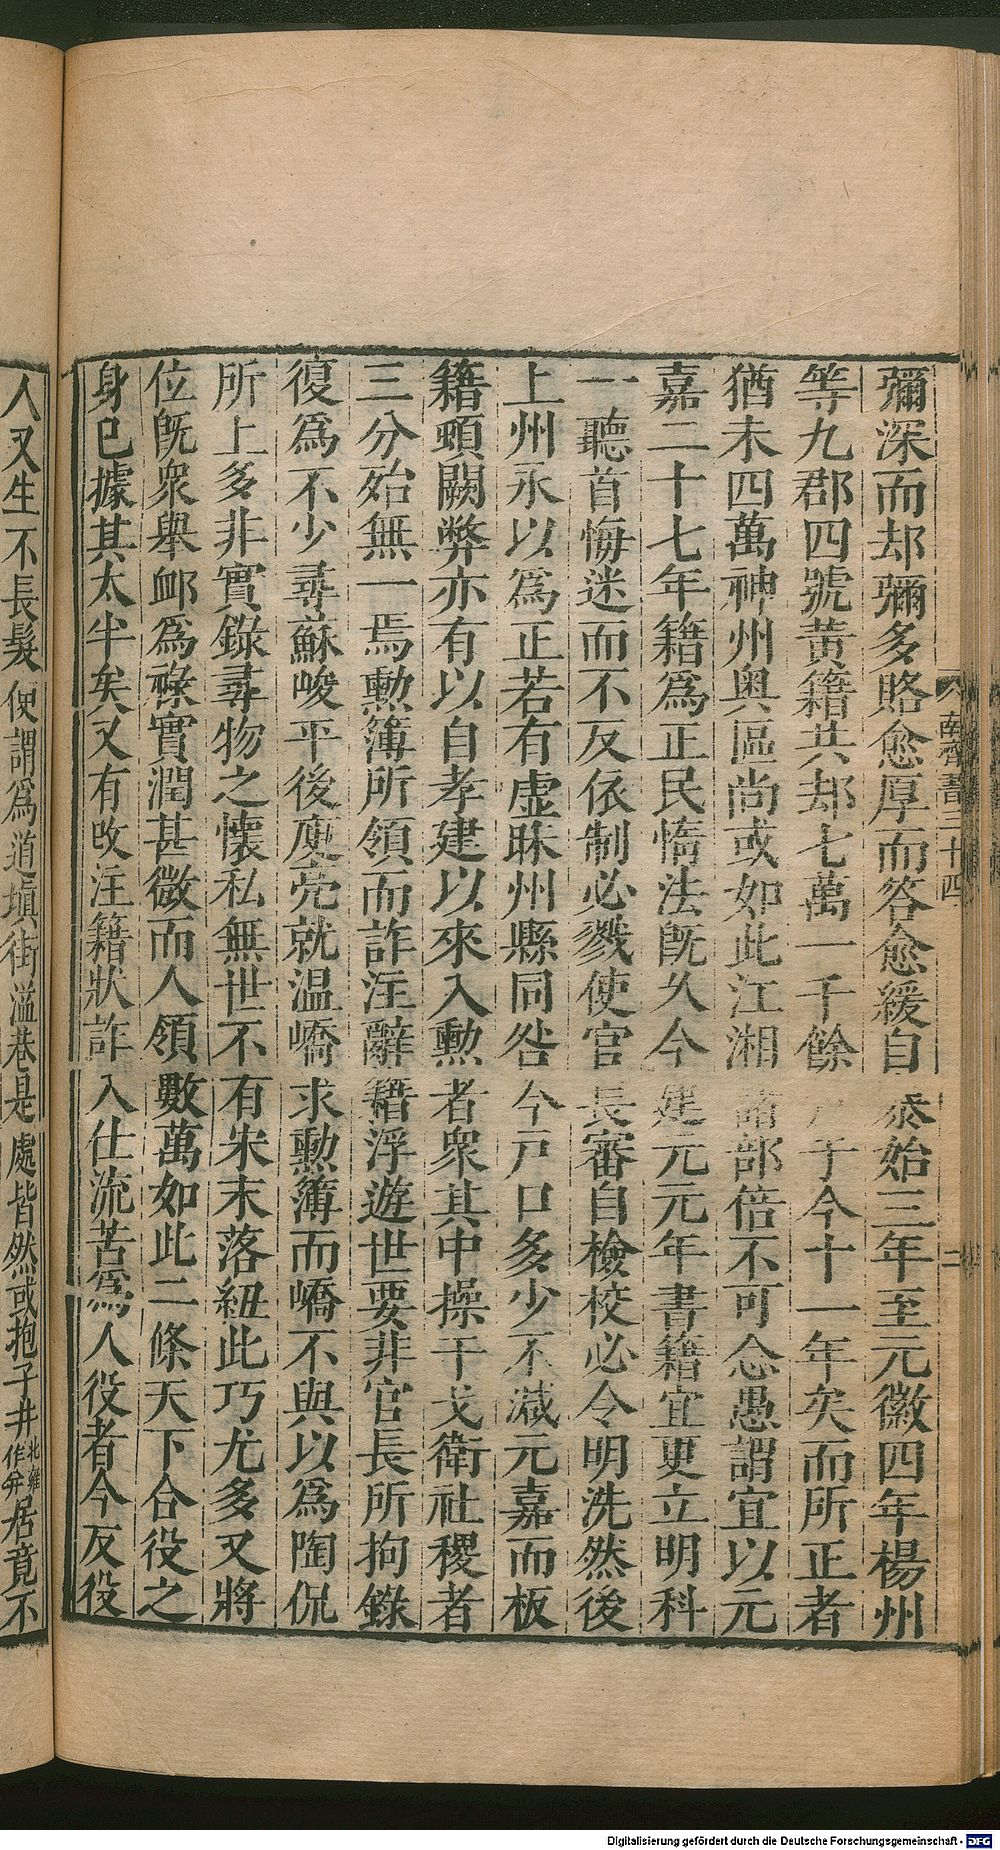 彌深而却彌多賂愈厚而答愈緩自泰始三年至元徽四年楊州
等九郡四號黃籍共却七萬一千餘戶于今十一年矣而所正者
猶未四萬神州奥區尚或如此江湘諸部倍不可念愚謂宜以元
嘉二十七年籍爲正民惰法既久今建元元年書籍宜更立明科
一聽首悔迷而不反依制必戮使官長審自檢校必令明洗然後
上州永以爲正若有虚昧州縣同咎今戸口多少不减元嘉而板
籍頓闕弊亦有以自孝建以來入勲者衆其中操干戈衛社稷者
三分殆無一焉勲簿所領而詐注辭籍浮遊世要非官長所拘錄
復爲不少尋蘇峻平後庾亮就温嶠求勲簿而嶠不與以爲陶侃
所上多非實錄尋物之懷私無世不有宋末落紐此巧尤多又將
位既衆舉䘏爲祿實潤甚微而人領數萬如此二條天下合役之
身已據其太半矣又有改注籍狀詐入仕流苦爲人役者今反役
人又生不長髮便謂爲道塡街溢巷是處皆然或抱子并北雍作弁居竟不
南齊書三十四
二
Digitalisierung gefördert durch die Deutsche Forschungsgemeinschaft - DFG